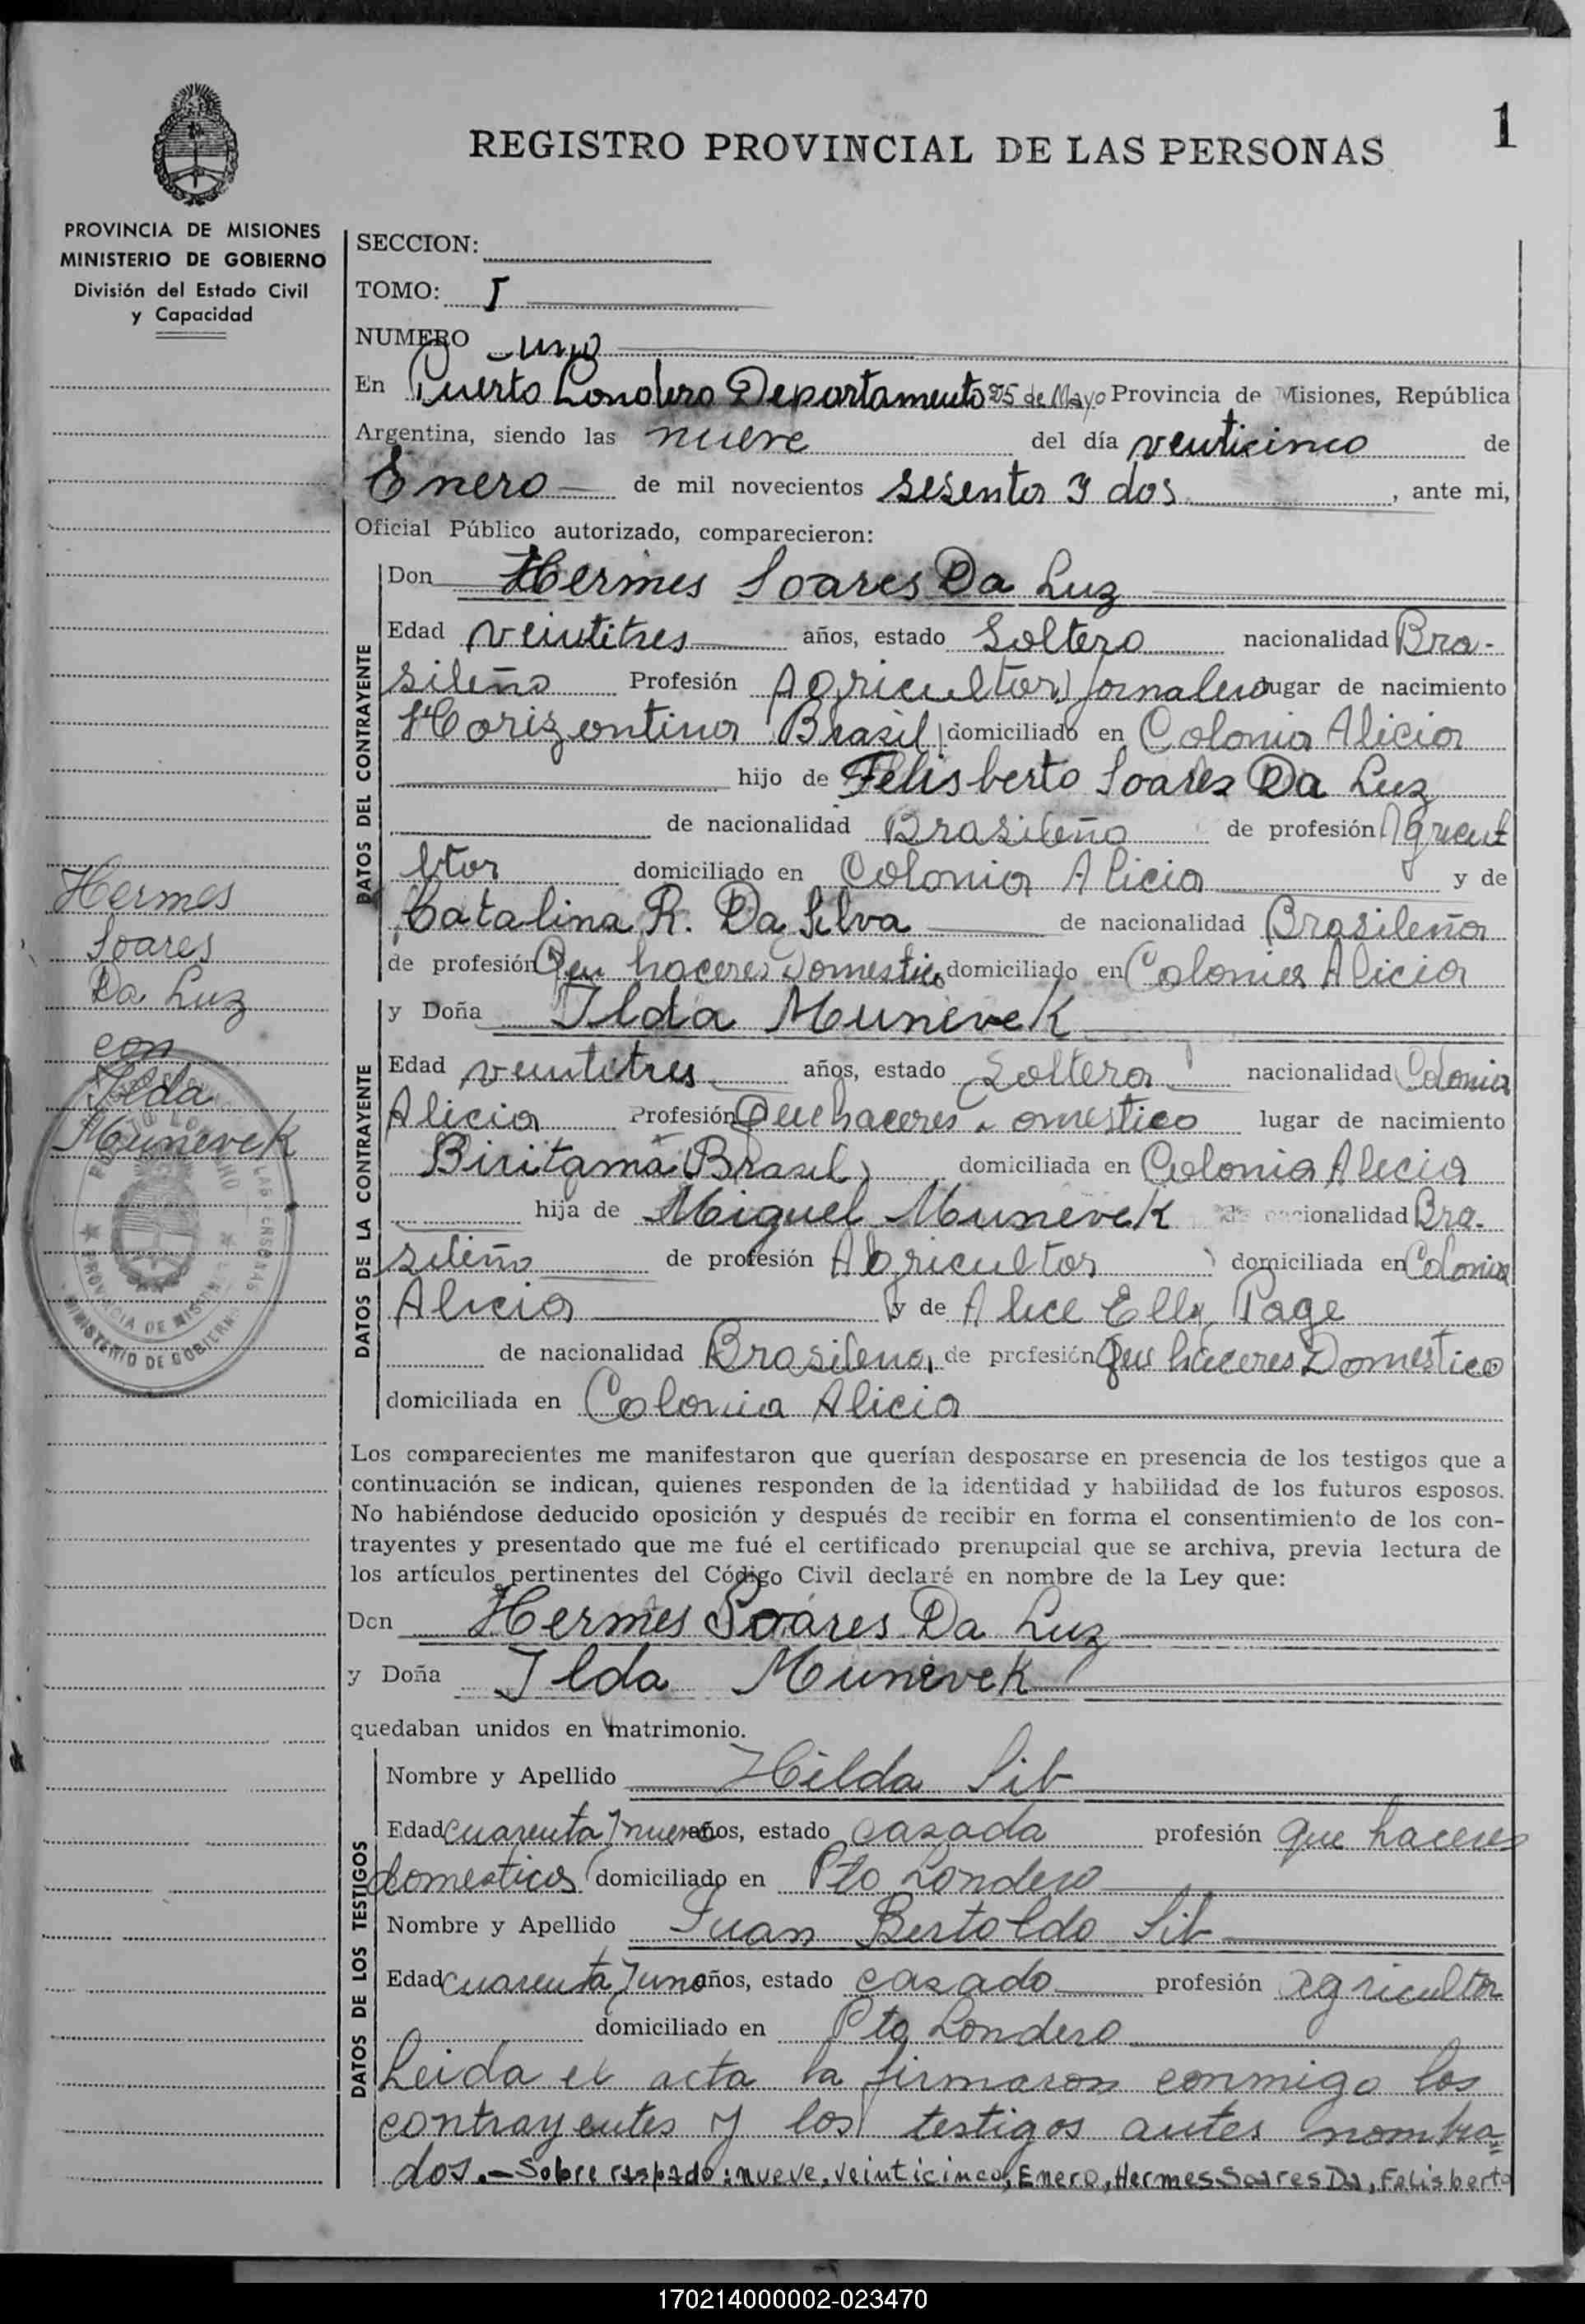 1
REGISTRO PROVINCIAL DE LAS PERSONAS
PROVINCIA DE MISIONES
MINISTERIO DE GOBIERNO
División del Estado Civil
y Capacidad
SECCION:
TOMO: I
NUMERO uno
En Puerto Londero Departamento 25 de Mayo Provincia de Misiones, República
Argentina, siendo las nueve del día venticinco de
Enero de mil novecientos sesenta y dos, ante mi,
Oficial Público autorizado, comparecieron:
DATOS DEL CONTRAYENTE
Don Hermes Soares Da Luz
Edad veintitres años, estado Soltero nacionalidad Bra-
sileño Profesión Agricultor) jornalero lugar de nacimiento
Horizontina Brasil domiciliado en Colonia Alicia
hijo de Felisberto Soares Da Luz
de nacionalidad Brasileño de profesión Agricul
ltor domiciliado en Colonia Alicia y de
Catalina R. Da Silva de nacionalidad Brasileña
de profesión Que haceres Domestico domiciliado en Colonia Alicia
DATOS DE LA CONTRAYENTE
y Doña Ilda Munevek
Edad ventitres años, estado Soltera nacionalidad Colonia
Alicia Profesión Que haceres omestico lugar de nacimiento
Biritama (Brasil) domiciliada en Colonia Alicia
hija de Miguel Munevek de nacionalidad Bra-
sileño de profesión Agricultor domiciliada en Colonia
Alicia y de Alice Elly Page
de nacionalidad Brasilena, de profesión Que haceres Domestico
domiciliada en Colonia Alicia
Los comparecientes me manifestaron que querían desposarse en presencia de los testigos que a
continuación se indican, quienes responden de la identidad y habilidad de los futuros esposos.
No habiéndose deducido oposición y después de recibir en forma el consentimiento de los con-
trayentes y presentado que me fué el certificado prenupcial que se archiva, previa lectura de
los artículos pertinentes del Código Civil declaré en nombre de la Ley que:
Don Hermes Soares Da Luz
y Doña Ilda Munevek
quedaban unidos en matrimonio.
DATOS DE LOS TESTIGOS
Nombre y Apellido Hilda Sib
Edad cuarenta y nueve años, estado casada profesión que haceres
domesticos domiciliado en Pto Londero
Nombre y Apellido Juan Bertoldo Sib
Edad cuarenta y uno años, estado casado profesión agricultor
domiciliado en Pto Londero
Leida el acta la firmaron conmigo los
contrayentes y los testigos antes nombra=
dos.— Sobre raspado: nueve, veinticinco, Enero, Hermes Soares Da, Felisberto
Hermes
Soares
Da Luz
con
Ilda
Munevek
PROVINCIA DE MISIONES
MINISTERIO DE GOBIERNO
170214000002-023470